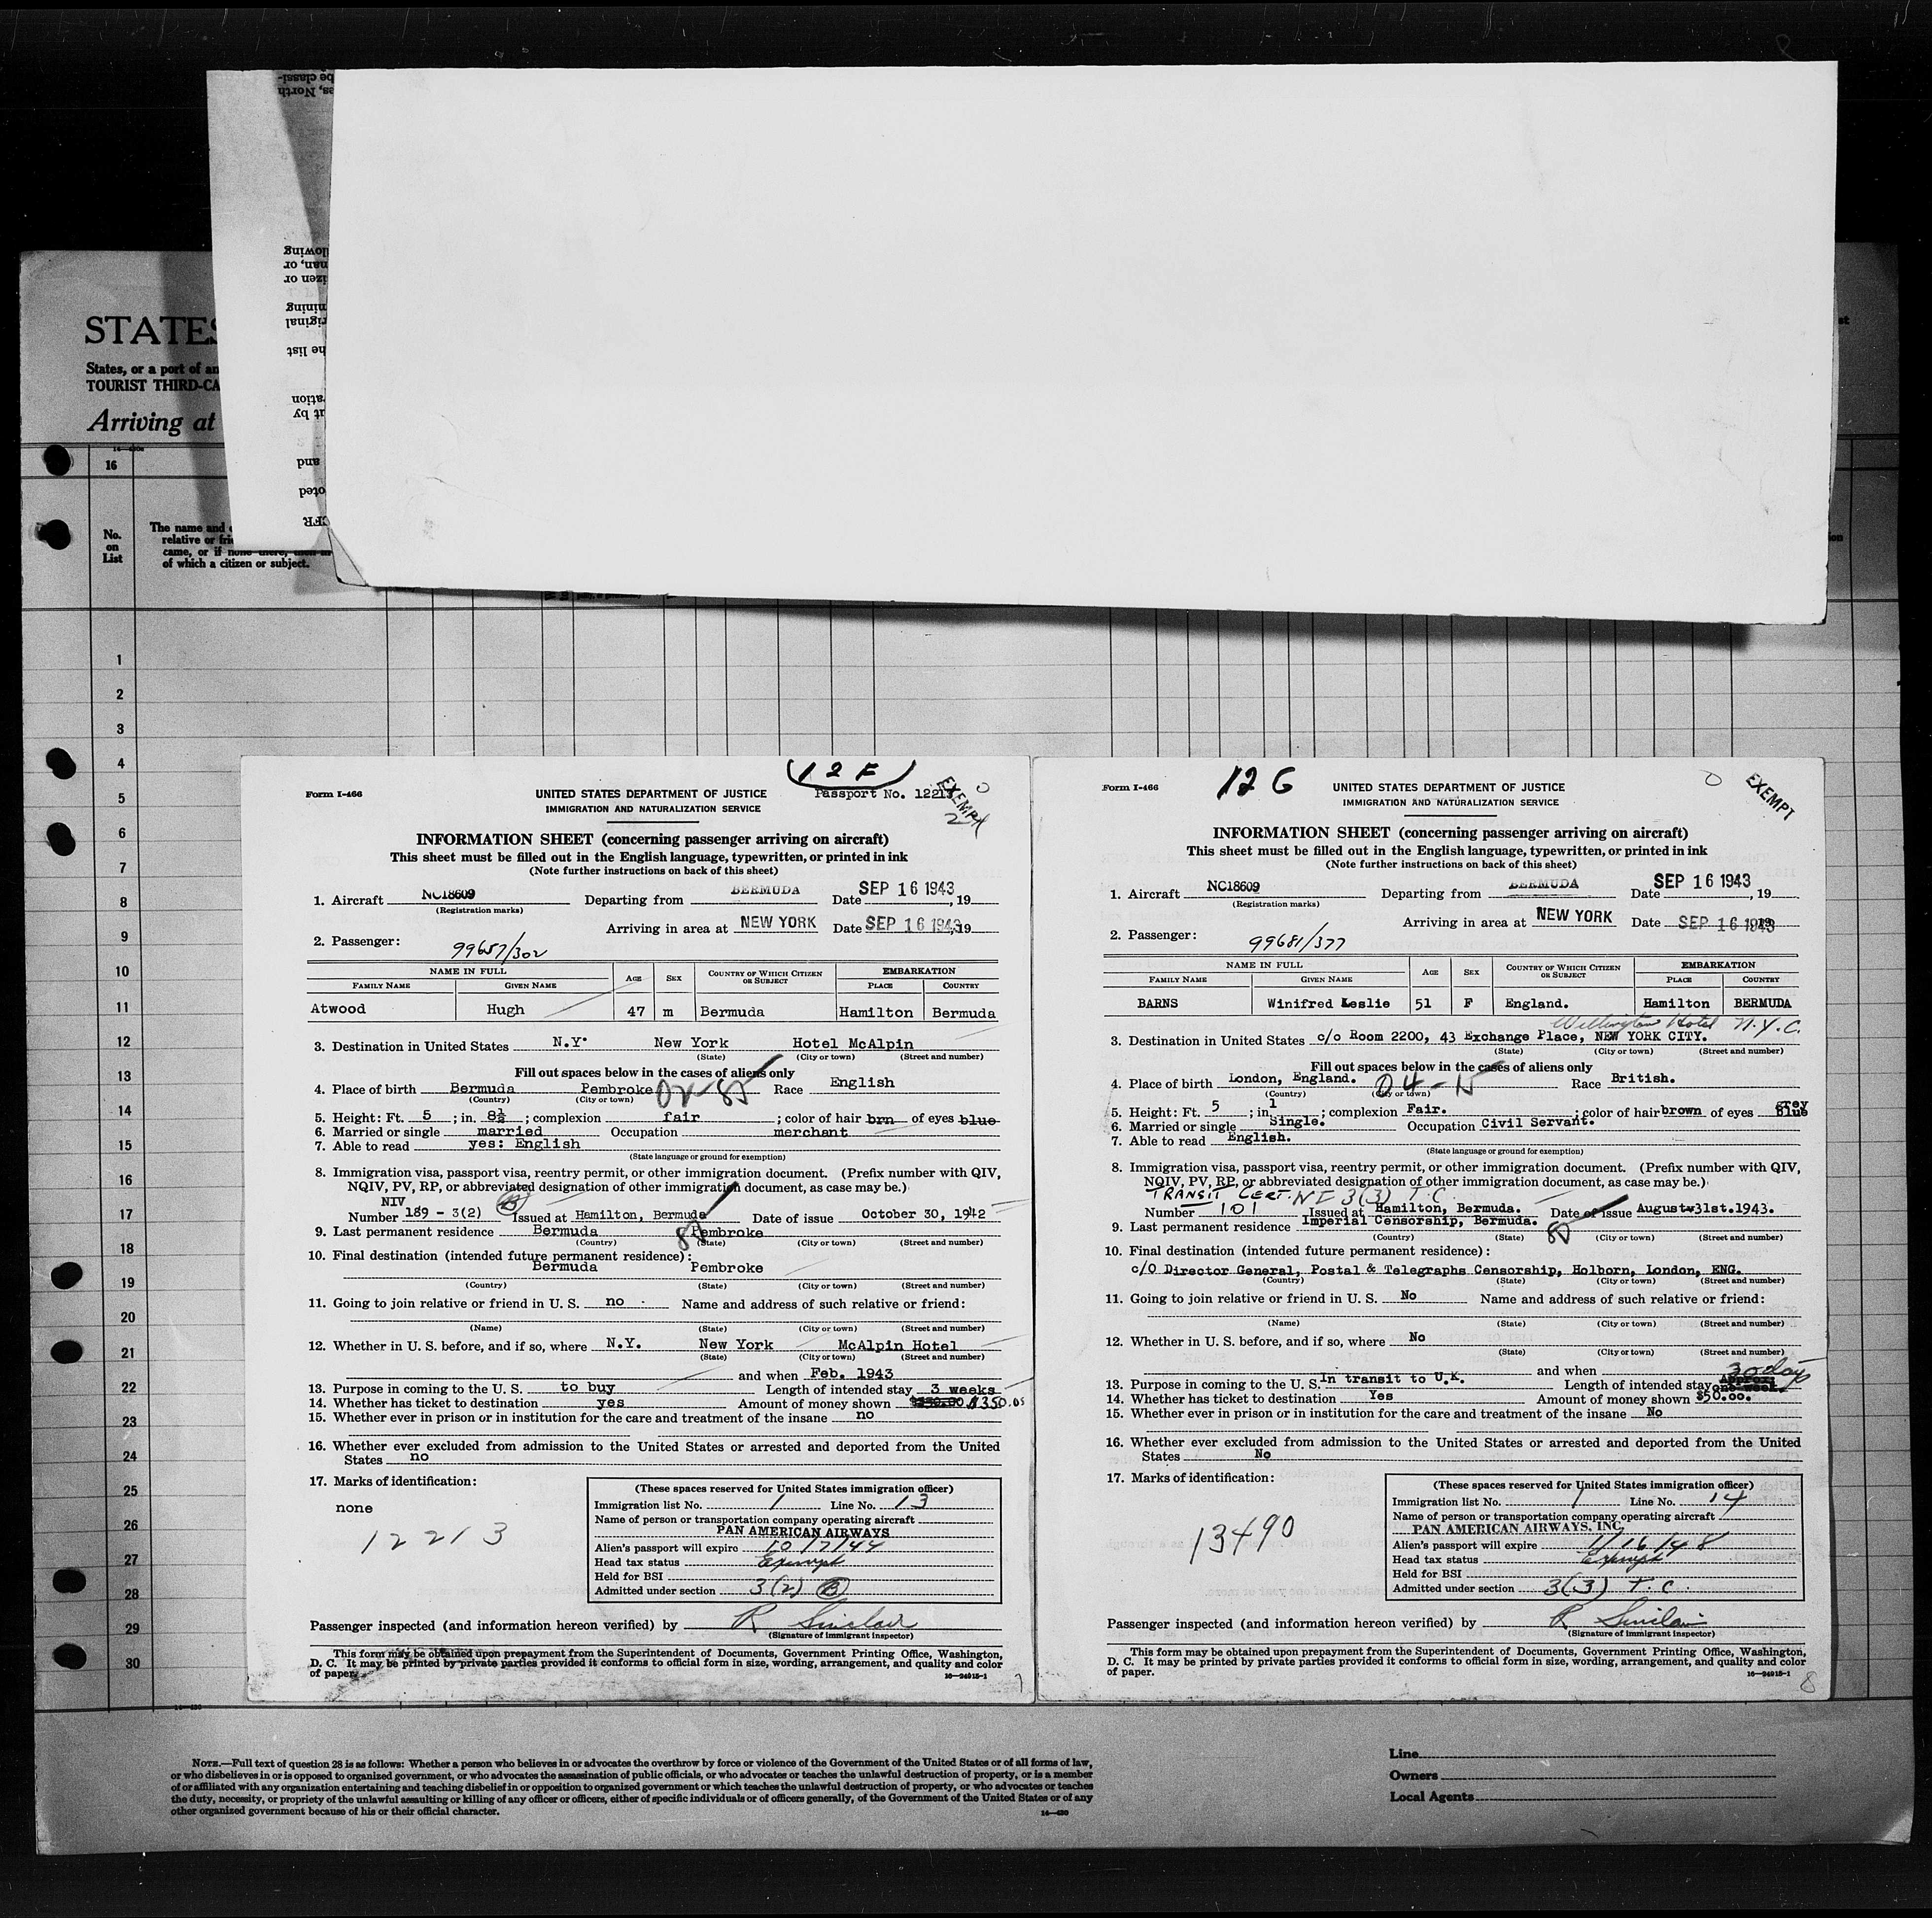 be classi-
es, North
lowing
nan, or
izen or
mining
riginal
he list
ration
at by
and
oted
CFR
STATES
States, or a port of an
TOURIST THIRD-CA
Arriving at
16
No.
on
List
The name and
relative or frie
came, or if none there, then in
of which a citizen or subject.
1
2
3
4
5
6
7
8
9
10
11
12
13
14
15
16
17
18
19
20
21
22
23
24
25
26
27
28
29
30
(12 F)
Form I-466
UNITED STATES DEPARTMENT OF JUSTICE
Passport No. 12213
EXEMPT
IMMIGRATION AND NATURALIZATION SERVICE
INFORMATION SHEET (concerning passenger arriving on aircraft)
This sheet must be filled out in the English language, typewritten, or printed in ink
(Note further instructions on back of this sheet)
1. Aircraft NC18609 Departing from BERMUDA Date SEP 16 1943, 19
(Registration marks)
Arriving in area at NEW YORK Date SEP 16 1943, 19
2. Passenger: 99657/302
NAME IN FULL AGE SEX COUNTRY OF WHICH CITIZEN OR SUBJECT EMBARKATION
FAMILY NAME GIVEN NAME PLACE COUNTRY
Atwood Hugh 47 m Bermuda Hamilton Bermuda
3. Destination in United States N.Y. New York Hotel McAlpin
(State) (City or town) (Street and number)
Fill out spaces below in the cases of aliens only
4. Place of birth Bermuda Pembroke Race English
(Country) (City or town)
5. Height: Ft. 5 ; in. 8½ ; complexion fair ; color of hair brn of eyes blue
6. Married or single married Occupation merchant
7. Able to read yes: English
(State language or ground for exemption)
8. Immigration visa, passport visa, reentry permit, or other immigration document. (Prefix number with QIV,
NQIV, PV, RP, or abbreviated designation of other immigration document, as case may be.)
NIV
Number 189 - 3(2) B Issued at Hamilton, Bermuda Date of issue October 30, 1942
9. Last permanent residence Bermuda Pembroke
(Country) (State) (City or town) (Street and number)
10. Final destination (intended future permanent residence):
Bermuda Pembroke
(Country) (State) (City or town) (Street and number)
11. Going to join relative or friend in U. S. no Name and address of such relative or friend:
(Name) (State) (City or town) (Street and number)
12. Whether in U. S. before, and if so, where N.Y. New York McAlpin Hotel
(State) (City or town) (Street and number)
and when Feb. 1943
13. Purpose in coming to the U. S. to buy Length of intended stay 3 weeks
14. Whether has ticket to destination yes Amount of money shown $250.00 $350.00
15. Whether ever in prison or in institution for the care and treatment of the insane no
16. Whether ever excluded from admission to the United States or arrested and deported from the United
States no
17. Marks of identification:
none
12213
(These spaces reserved for United States immigration officer)
Immigration list No. 1 Line No. 13
Name of person or transportation company operating aircraft
PAN AMERICAN AIRWAYS
Alien's passport will expire 10/7/44
Head tax status Exempt
Held for BSI
Admitted under section 3(2) B
Passenger inspected (and information hereon verified) by R Sinclair
(Signature of immigrant inspector)
This form may be obtained upon prepayment from the Superintendent of Documents, Government Printing Office, Washington,
D. C. It may be printed by private parties provided it conforms to official form in size, wording, arrangement, and quality and color
of paper.
16—24915-1
7
12 G
Form I-466
UNITED STATES DEPARTMENT OF JUSTICE
EXEMPT
IMMIGRATION AND NATURALIZATION SERVICE
INFORMATION SHEET (concerning passenger arriving on aircraft)
This sheet must be filled out in the English language, typewritten, or printed in ink
(Note further instructions on back of this sheet)
1. Aircraft NC18609 Departing from BERMUDA Date SEP 16 1943, 19
(Registration marks)
Arriving in area at NEW YORK Date SEP 16 1943
2. Passenger: 99681/377
NAME IN FULL AGE SEX COUNTRY OF WHICH CITIZEN OR SUBJECT EMBARKATION
FAMILY NAME GIVEN NAME PLACE COUNTRY
BARNS Winifred Leslie 51 F England. Hamilton BERMUDA
Wellington Hotel N.Y.C.
3. Destination in United States c/o Room 2200, 43 Exchange Place, NEW YORK CITY.
(State) (City or town) (Street and number)
Fill out spaces below in the cases of aliens only
4. Place of birth London, England. Race British.
(Country) (City or town)
5. Height: Ft. 5 ; in. 1 ; complexion Fair. ; color of hair brown of eyes blue grey
6. Married or single Single. Occupation Civil Servant.
7. Able to read English.
(State language or ground for exemption)
8. Immigration visa, passport visa, reentry permit, or other immigration document. (Prefix number with QIV,
NQIV, PV, RP, or abbreviated designation of other immigration document, as case may be.)
TRANSIT CERT. NI 3(3) T.C.
Number 101 Issued at Hamilton, Bermuda. Date of issue August 31st.1943.
9. Last permanent residence Imperial Censorship, Bermuda.
(Country) (State) (City or town) (Street and number)
10. Final destination (intended future permanent residence):
c/O Director General, Postal & Telegraphs Censorship, Holborn, London, ENG.
(Country) (State) (City or town) (Street and number)
11. Going to join relative or friend in U. S. No Name and address of such relative or friend:
(Name) (State) (City or town) (Street and number)
12. Whether in U. S. before, and if so, where No
(State) (City or town) (Street and number)
and when
13. Purpose in coming to the U. S. In transit to U.K. Length of intended stay Approx: one week. 30 days
14. Whether has ticket to destination Yes Amount of money shown $50.00.
15. Whether ever in prison or in institution for the care and treatment of the insane No
16. Whether ever excluded from admission to the United States or arrested and deported from the United
States No
17. Marks of identification:
13490
(These spaces reserved for United States immigration officer)
Immigration list No. 1 Line No. 14
Name of person or transportation company operating aircraft
PAN AMERICAN AIRWAYS, INC.
Alien's passport will expire 1/16/48
Head tax status Exempt
Held for BSI
Admitted under section 3(3) T.C.
Passenger inspected (and information hereon verified) by R Sinclair
(Signature of immigrant inspector)
This form may be obtained upon prepayment from the Superintendent of Documents, Government Printing Office, Washington,
D. C. It may be printed by private parties provided it conforms to official form in size, wording, arrangement, and quality and color
of paper.
16—24915-1
8
NOTE.—Full text of question 28 is as follows: Whether a person who believes in or advocates the overthrow by force or violence of the Government of the United States or of all forms of law,
or who disbelieves in or is opposed to organized government, or who advocates the assassination of public officials, or who advocates or teaches the unlawful destruction of property, or is a member
of or affiliated with any organization entertaining and teaching disbelief in or opposition to organized government or which teaches the unlawful destruction of property, or who advocates or teaches
the duty, necessity, or propriety of the unlawful assaulting or killing of any officer or officers, either of specific individuals or of officers generally, of the Government of the United States or of any
other organized government because of his or their official character.
Line
Owners
Local Agents